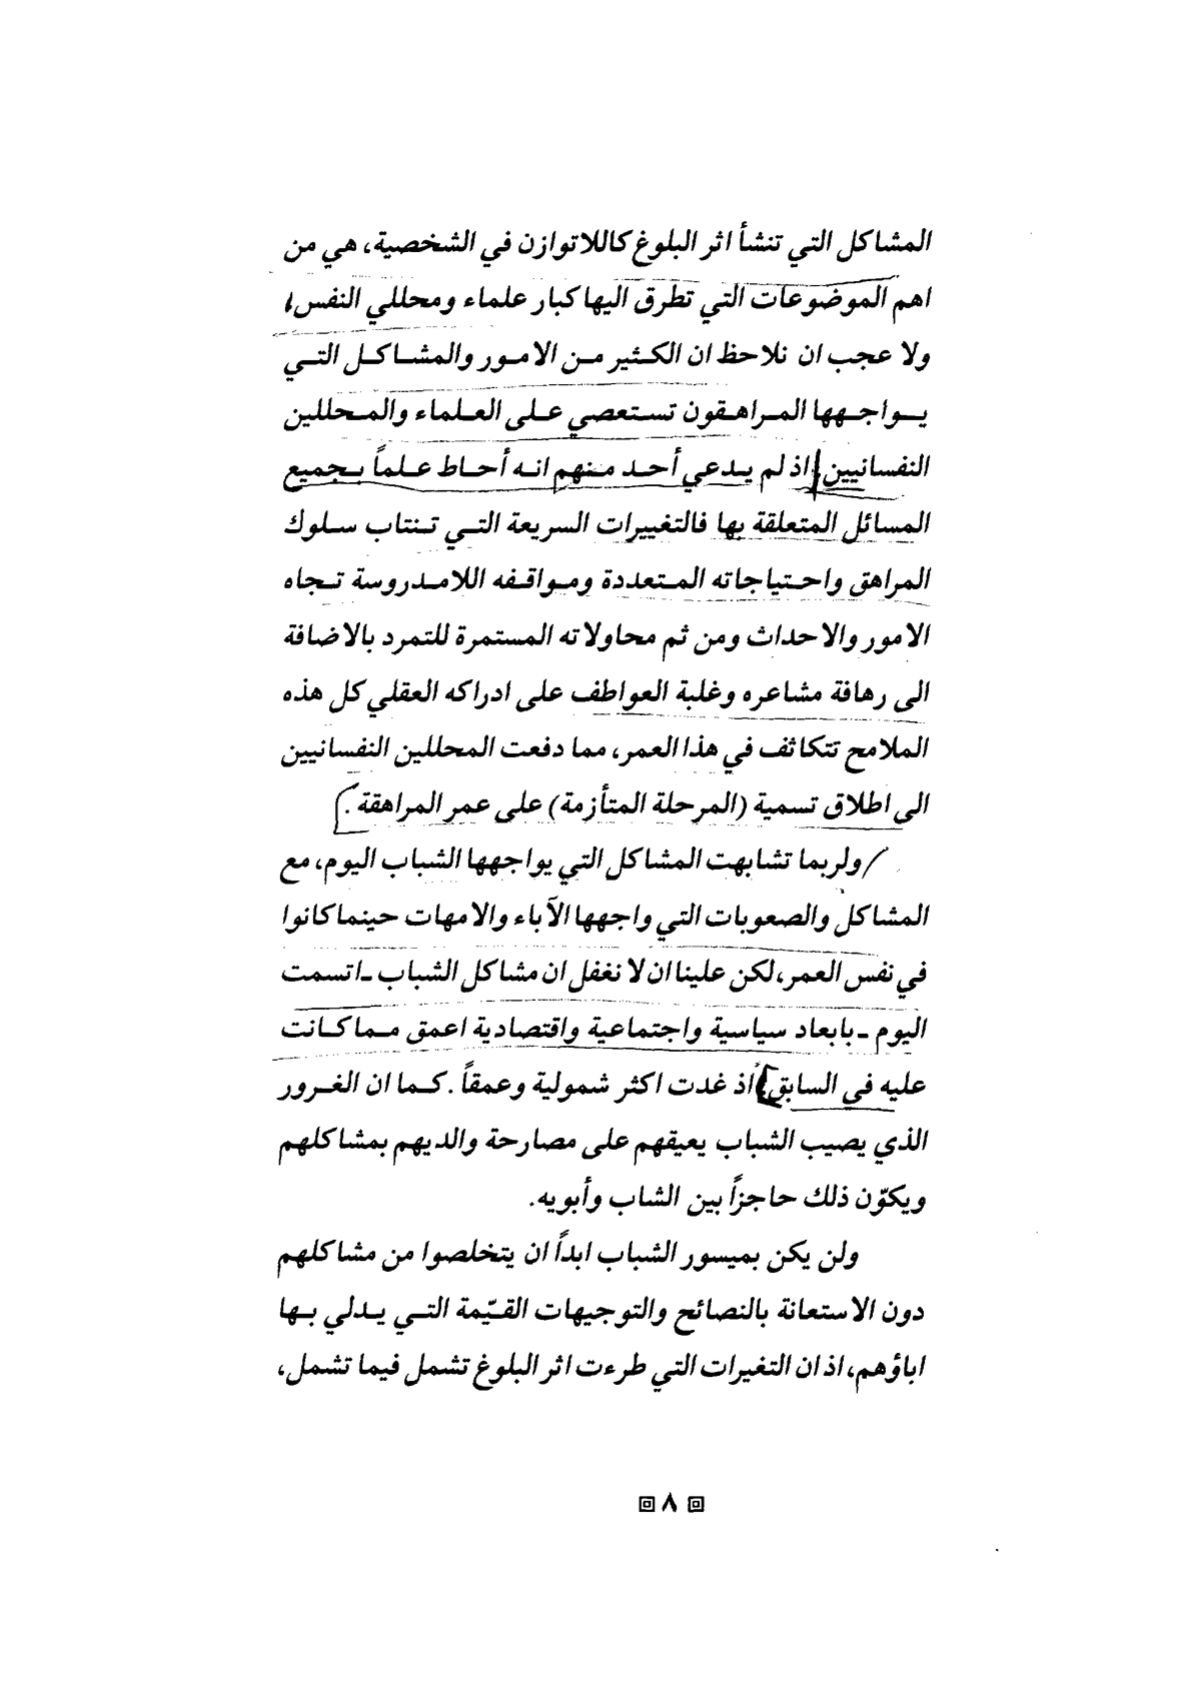 المشاكل التي تنشأ اثر البلوغ كاللاتوازن في الشخصية، هي من
اهم الموضوعات التي تطرق اليها كبار علماء ومحللي النفس،
ولا عجب ان نلاحظ ان الكثير من الامور والمشاكل التي
يواجهها المراهقون تستعصي على العلماء والمحللين
النفسانيين اذ لم يدعي أحد منهم انه أحاط علماً بجميع
المسائل المتعلقة بها فالتغييرات السريعة التي تنتاب سلوك
المراهق واحتياجاته المتعددة ومواقفه اللامدروسة تجاه
الامور والاحداث ومن ثم محاولاته المستمرة للتمرد بالاضافة
الى رهافة مشاعره وغلبة العواطف على ادراكه العقلي كل هذه
الملامح تتكاثف في هذا العمر، مما دفعت المحللين النفسانيين
الى اطلاق تسمية (المرحلة المتأزمة) على عمر المراهقة.
ولربما تشابهت المشاكل التي يواجهها الشباب اليوم، مع
المشاكل والصعوبات التي واجهها الآباء والامهات حينما كانوا
في نفس العمر، لكن علينا ان لا نغفل ان مشاكل الشباب ـ اتسمت
اليوم ـ بابعاد سياسية واجتماعية واقتصادية اعمق مما كانت
عليه في السابق اذ غدت اكثر شمولية وعمقاً. كما ان الغرور
الذي يصيب الشباب يعيقهم على مصارحة والديهم بمشاكلهم
ويكوّن ذلك حاجزاً بين الشاب وأبويه.
ولن يكن بميسور الشباب ابداً ان يتخلصوا من مشاكلهم
دون الاستعانة بالنصائح والتوجيهات القيّمة التي يدلي بها
اباؤهم، اذ ان التغيرات التي طرءت اثر البلوغ تشمل فيما تشمل،
٨